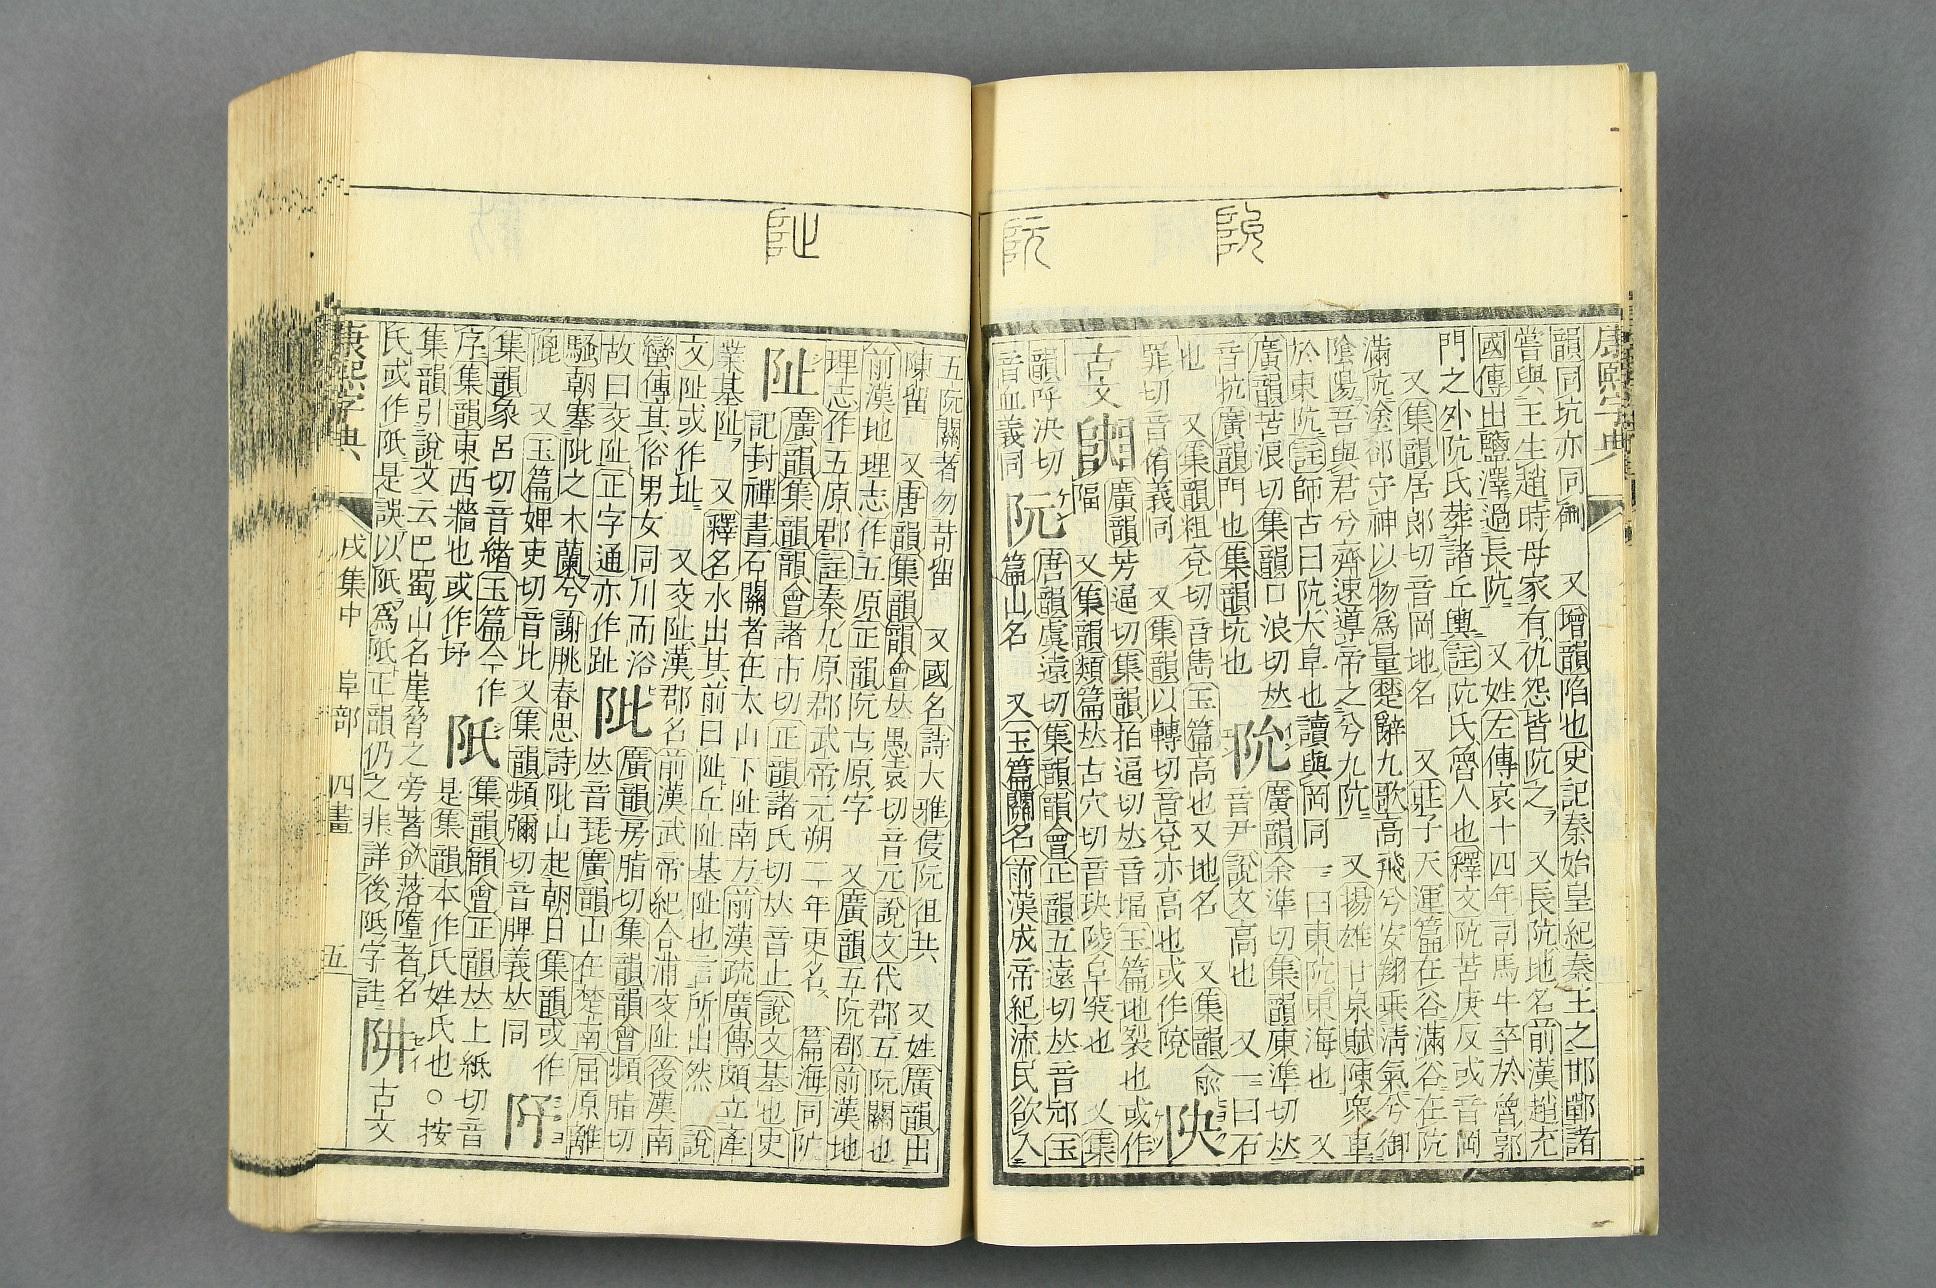 阭
阮
康熙字典
韻同坑亦同 又增韻陷也史記秦始皇紀秦王之邯鄲諸
嘗與王生趙時母家有仇怨皆阬之 又長阬地名前漢趙充
國傳出鹽澤過長阬 又姓左傳哀十四年司馬牛卒於魯郭
門之外阬氏葬諸丘輿註阬氏魯人也釋文阬苦庚反或音岡
又集韻居郎切音岡地名 又莊子天運篇在谷滿谷在阬
滿阬塗郤守神以物爲量楚辭九歌高飛兮安翔乗淸氣兮御
隂陽吾與君兮齊速導帝之兮九阬 又揚雄甘泉賦陳衆車
於東阬註師古曰阬大阜也讀與岡同 一曰東阬東海也 又
廣韻苦浪切集韻口浪切𠀤
音抗廣韻門也集韻坑也
阭
廣韻余準切集韻庾準切𠀤
音尹說文高也 又一曰石
也 又集韻粗兗切音雋玉篇高也又地名 又集韻兪
罪切音侑義同 又集韻以轉切音兗亦高也或作
古文
廣韻芳逼切集韻拍逼切𠀤音堛玉篇地裂也或作
又集韻類篇𠀤古穴切音玦陵阜突也 又集
韻呼決切
音血義同
阮
唐韻虞遠切集韻韻會正韻五遠切𠀤音 玉
篇山名 又玉篇關名前漢成帝紀流民欲入
阯
五阮關者勿苛留 又國名詩大雅侵阮徂共 又姓廣韻出
陳留 又唐韻集韻韻會𠀤愚袁切音元說文代郡五阮關也
前漢地理志作五原正韻阮古原字 又廣韻五阮郡前漢地
理志作五原郡註秦九原郡武帝元朔二年更名 篇海同阬
阯
廣韻集韻韻會諸市切正韻諸氏切𠀤音止說文基也史
記封禪書石閭者在太山下阯南方前漢疏廣傳頗立產
業基阯 又釋名水出其前曰阯丘阯基阯也言所出然 說
文阯或作址 又交阯漢郡名前漢武帝紀合浦交阯後漢南
蠻傳其俗男女同川而浴
故曰交阯正字通亦作趾
阰
廣韻房脂切集韻韻會頻脂切
𠀤音琵廣韻山在楚南屈原離
騷朝搴阰之木蘭兮謝朓春思詩阰山起朝日集韻或作
又玉篇婢吏切音比又集韻頻彌切音脾義𠀤同
集韻象呂切音緒玉篇今作
序集韻東西牆也或作
集韻韻會正韻𠀤上紙切音
是集韻本作氏姓氏也○按
集韻引說文云巴蜀山名崖脅之旁著欲落墮者名
氏或作阺是誤以 爲 正韻仍之非詳後阺字註
阱
古文
康熙字典 戌集中 阜部 四畫 五